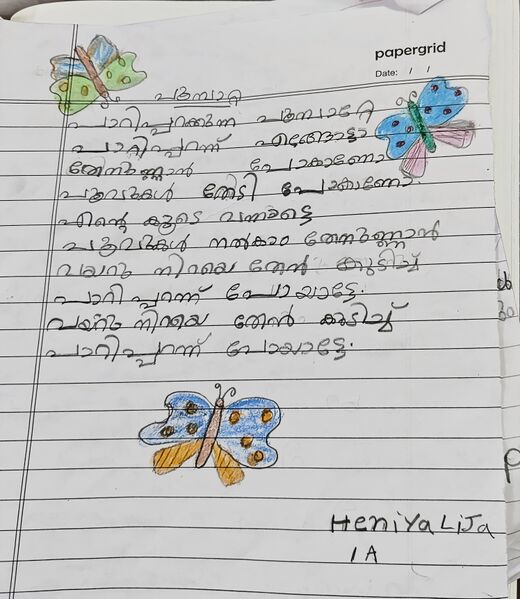 papergrid
Date: / /
പൂമ്പാറ്റ
പാറിപ്പറക്കുന്ന പൂമ്പാറ്റേ
പാറിപ്പറന്ന് എങ്ങോട്ടാ
തേനുണ്ണാൻ പോകാണോ
പൂവുകൾ തേടി പോകാണോ.
എൻ്റെ കൂടെ വന്നാട്ടെ
പൂവുകൾ നൽകാം തേനുണ്ണാൻ
വയറു നിറയെ തേൻ കുടിച്ച്
പാറിപ്പറന്ന് പോയാട്ടേ.
വയറു നിറയെ തേൻ കുടിച്ച്
പാറിപ്പറന്ന് പോയാട്ടേ.
Heniya Lija
1 A